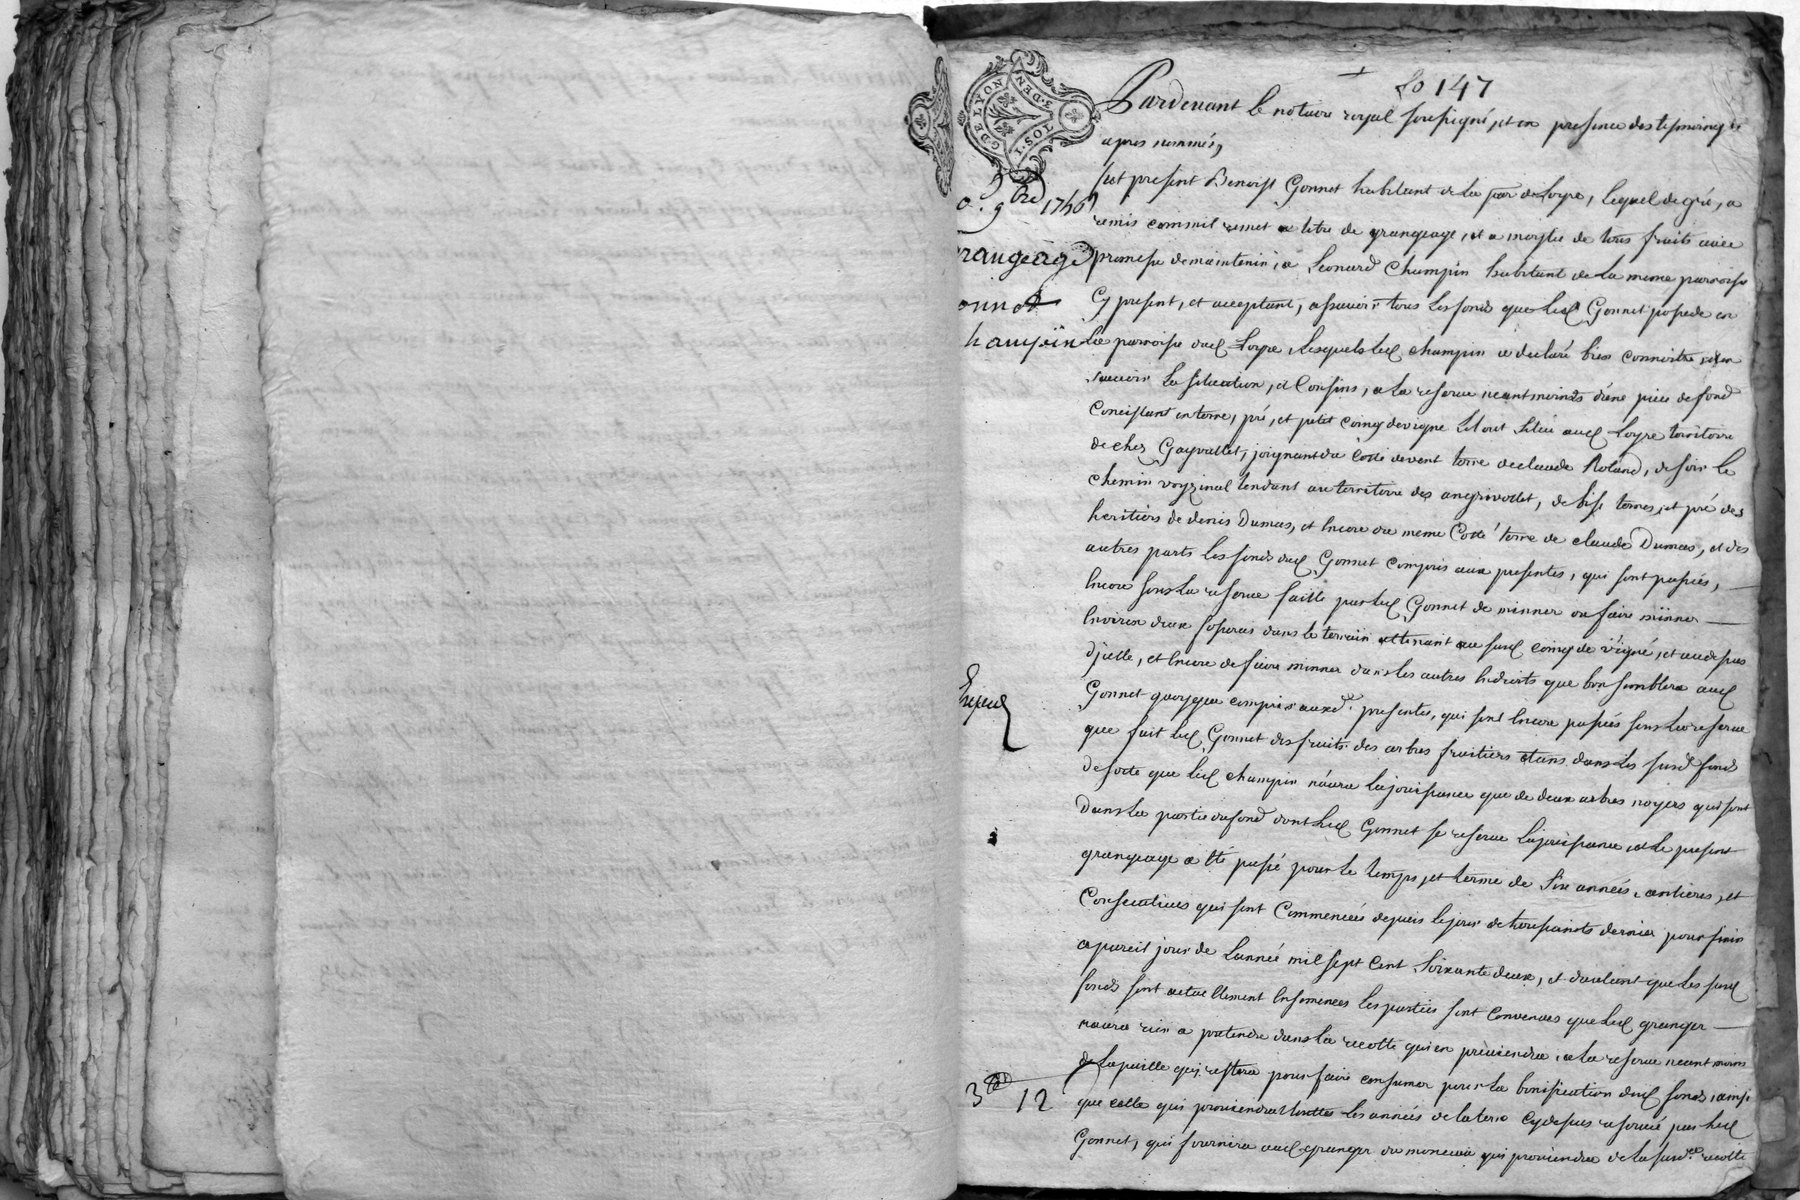 fo 147
G. DE LYON
1. SOL. 3. DEN
Pardevant le notaire royal soussigné, et en presence des temoings
apres nommés,
fut present Benoist Gonnet habitant de la par de Loyre, lequel de gré, a
9bre 1756
remis commil remet a titre de grangeage, et a moytie de tous fruits avec
rangeage
promesse de maintenir, a Leonard Champin habitant de la meme parroisse
onnet
Cy present, et acceptant, assavoir tous les fonds que led Gonnet possede en
hampin
la parroisse dud Loyre, lesquels led champin a declaré bien connoitre, et en
sçavoir la situation, et Confins, a la reserve neantmoins d'une piece de fond
Concistant en terre, pré, et petit coing de vigne le tout situé aud Loyre territoire
de chez Gayvallet, joignant du Cotté devent terre de claude Roland, de soir le
chemin voyzinal tendant au territoire des angrivollet, de bise terres, et pré des
heritiers de denis Dumas, et encore du meme Cotté terre de claude Dumas, et des
autres parts les fonds dud Gonnet compris aux presentes, qui sont passées,
encore sous la reserve faitte par led Gonnet de minner ou faire minner
environ deux soperées dans le terrain attenant au susd coing de vigne, et audessus
d'icelle, et encore de faire minner dans les autres endroits que bon semblera aud
Expedé
Gonnet quoyque compris auxd. presentes, qui sont encore passées sous la reserve
que fait led Gonnet des fruits des arbres fruitiers etans dans les susd fonds
de sorte que led champin n'aura la jouissance que de deux arbres noyers qui sont
dans la partie du fond dont led Gonnet se reserve la jouissance, et le present
grangeage a été passé pour le temps, et terme de six années, entieres, et
Consecutives qui sont Commencées depuis le jour de toussaints dernier pour finir
a pareil jour de L'année mil sept Cent soixante deux, et d'autant que les susd
fonds sont actuellement ensemencés les parties sont convenues que led granger
n'aura rien a pretendre dans la recolte qui en proviendra, a la reserve neant moins
de la paille qui restera pour faire consumer pour la bonification dud fonds, ainsi
3 12
que celle qui proviendra touttes les années de la terre cydessus reservée par led
Gonnet, qui fournira aud granger du monceau qui proviendra de la susd. recolte